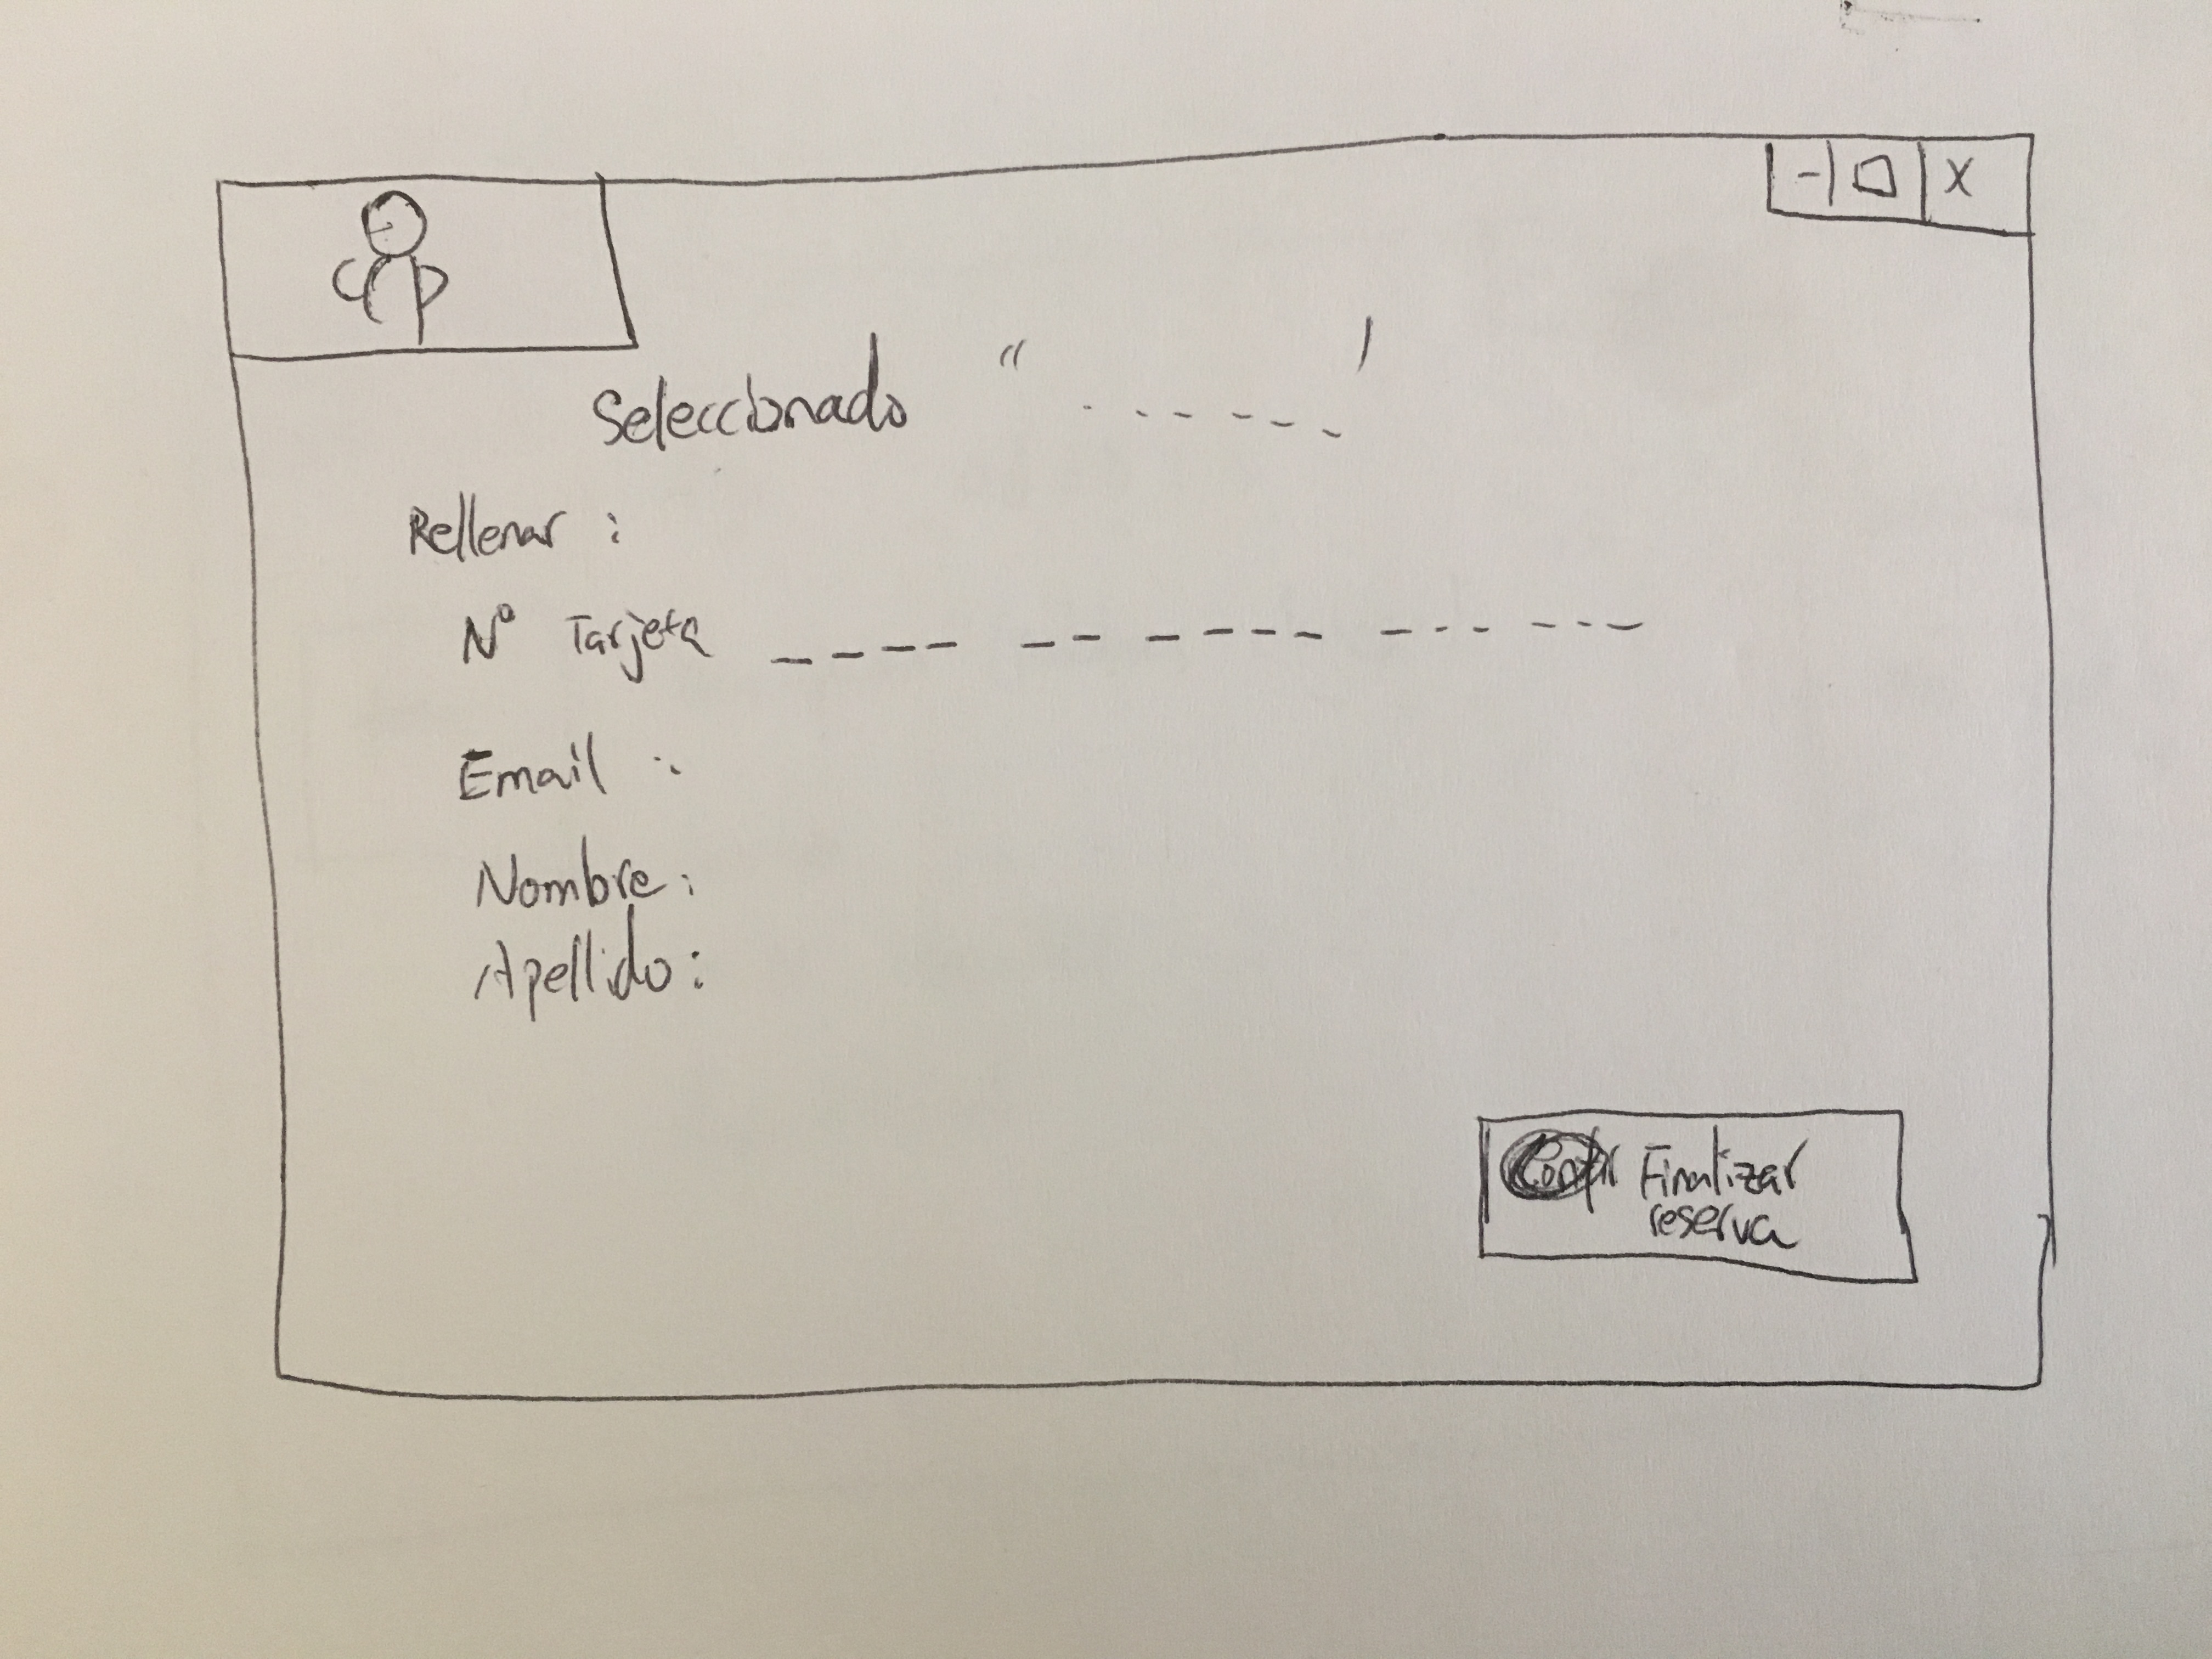 Seleccionado " - - - - - - "
Rellenar :
Nº Tarjeta - - - - - - - - - - - - - - - -
Email :
Nombre :
Apellido :
Finalizar
reserva
- □ X